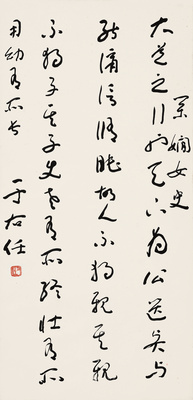 嫻女史
大道之行也天下為公選賢與
能講信修睦故人不獨親其親
不獨子其子使老有所終壯有所
用幼有所長
于右任